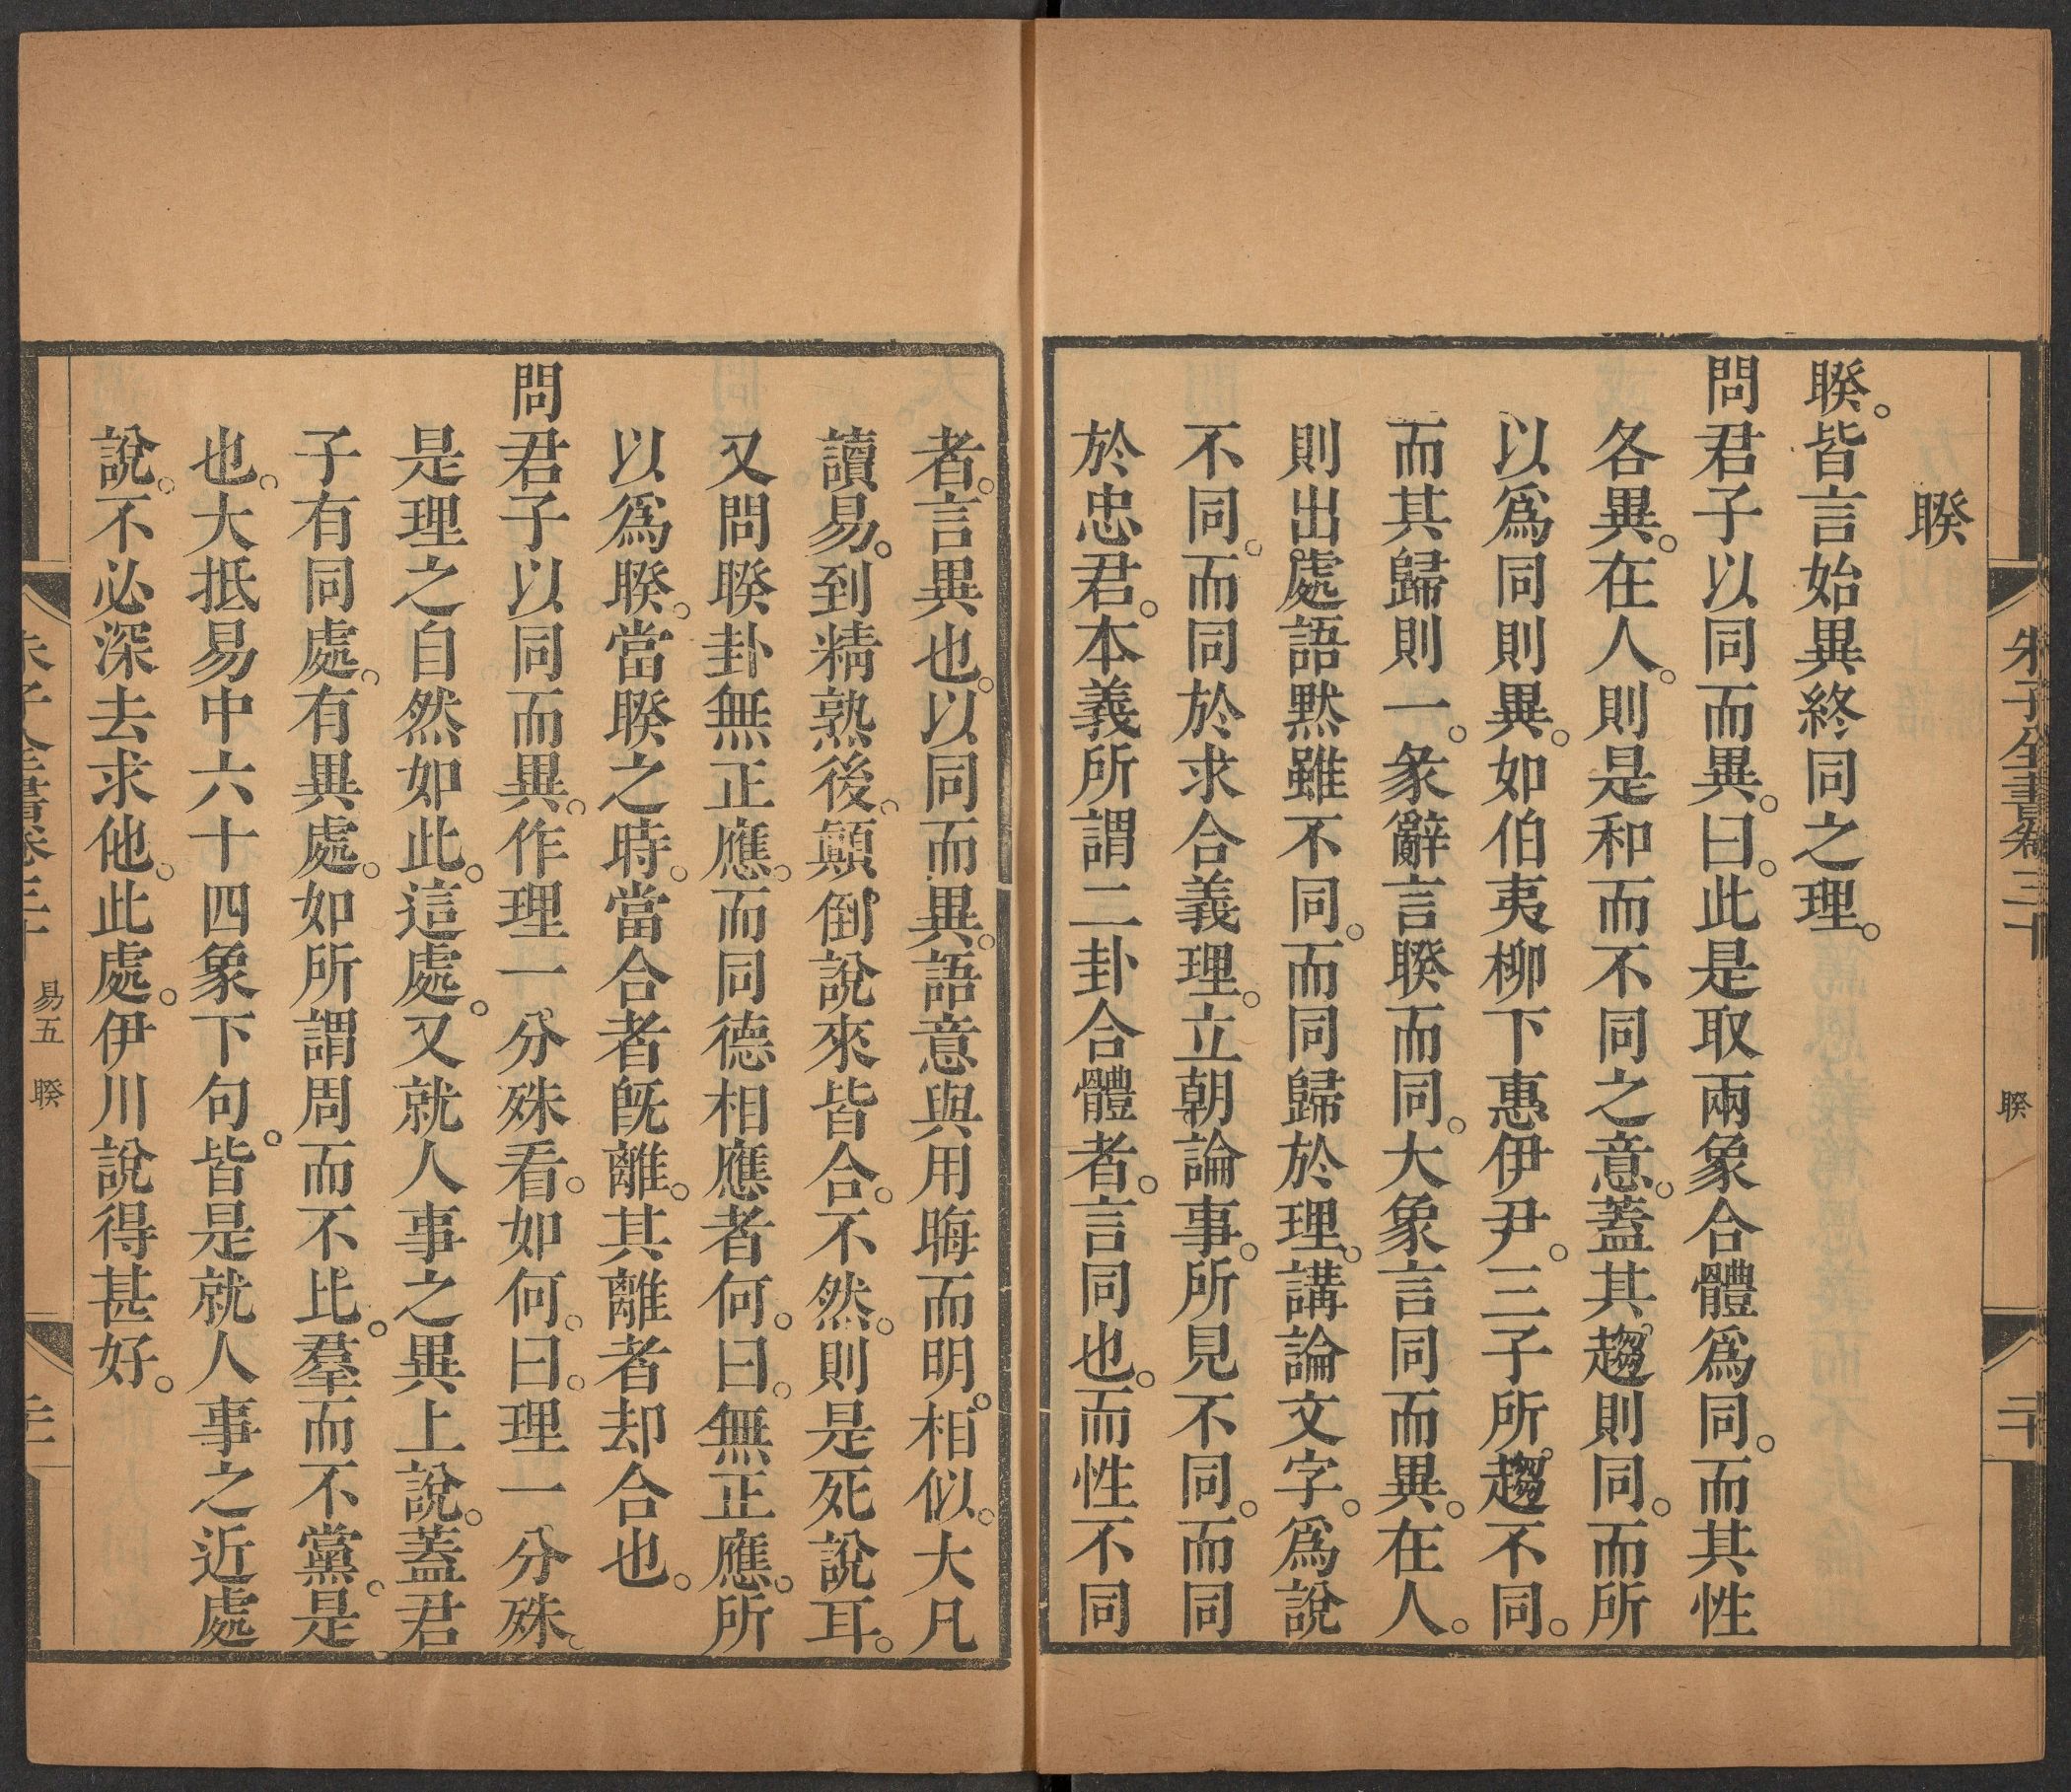 朱子全書卷三十
睽
二十
睽
睽。皆言始異終同之理。
問君子以同而異。曰。此是取兩象合體爲同。而其性
各異。在人。則是和而不同之意。蓋其趨則同。而所
以爲同則異。如伯夷柳下惠伊尹。三子所趨不同。
而其歸則一。彖辭言睽而同。大象言同而異。在人。
則出處語默雖不同。而同歸於理。講論文字。爲說
不同。而同於求合義理。立朝論事。所見不同。而同
於忠君。本義所謂二卦合體者。言同也。而性不同
者。言異也。以同而異。語意與用晦而明。相似。大凡
讀易。到精熟後。顚倒說來皆合。不然。則是死說耳。
又問睽卦無正應。而同德相應者何。曰。無正應。所
以爲睽。當睽之時。當合者旣離。其離者却合也。
問君子以同而異。作理一分殊看。如何。曰。理一分殊。
是理之自然如此。這處。又就人事之異上說。蓋君
子有同處。有異處。如所謂周而不比。羣而不黨。是
也。大抵易中六十四象下句。皆是就人事之近處
說。不必深去求他。此處。伊川說得甚好。
朱子全書卷三十
易五
睽